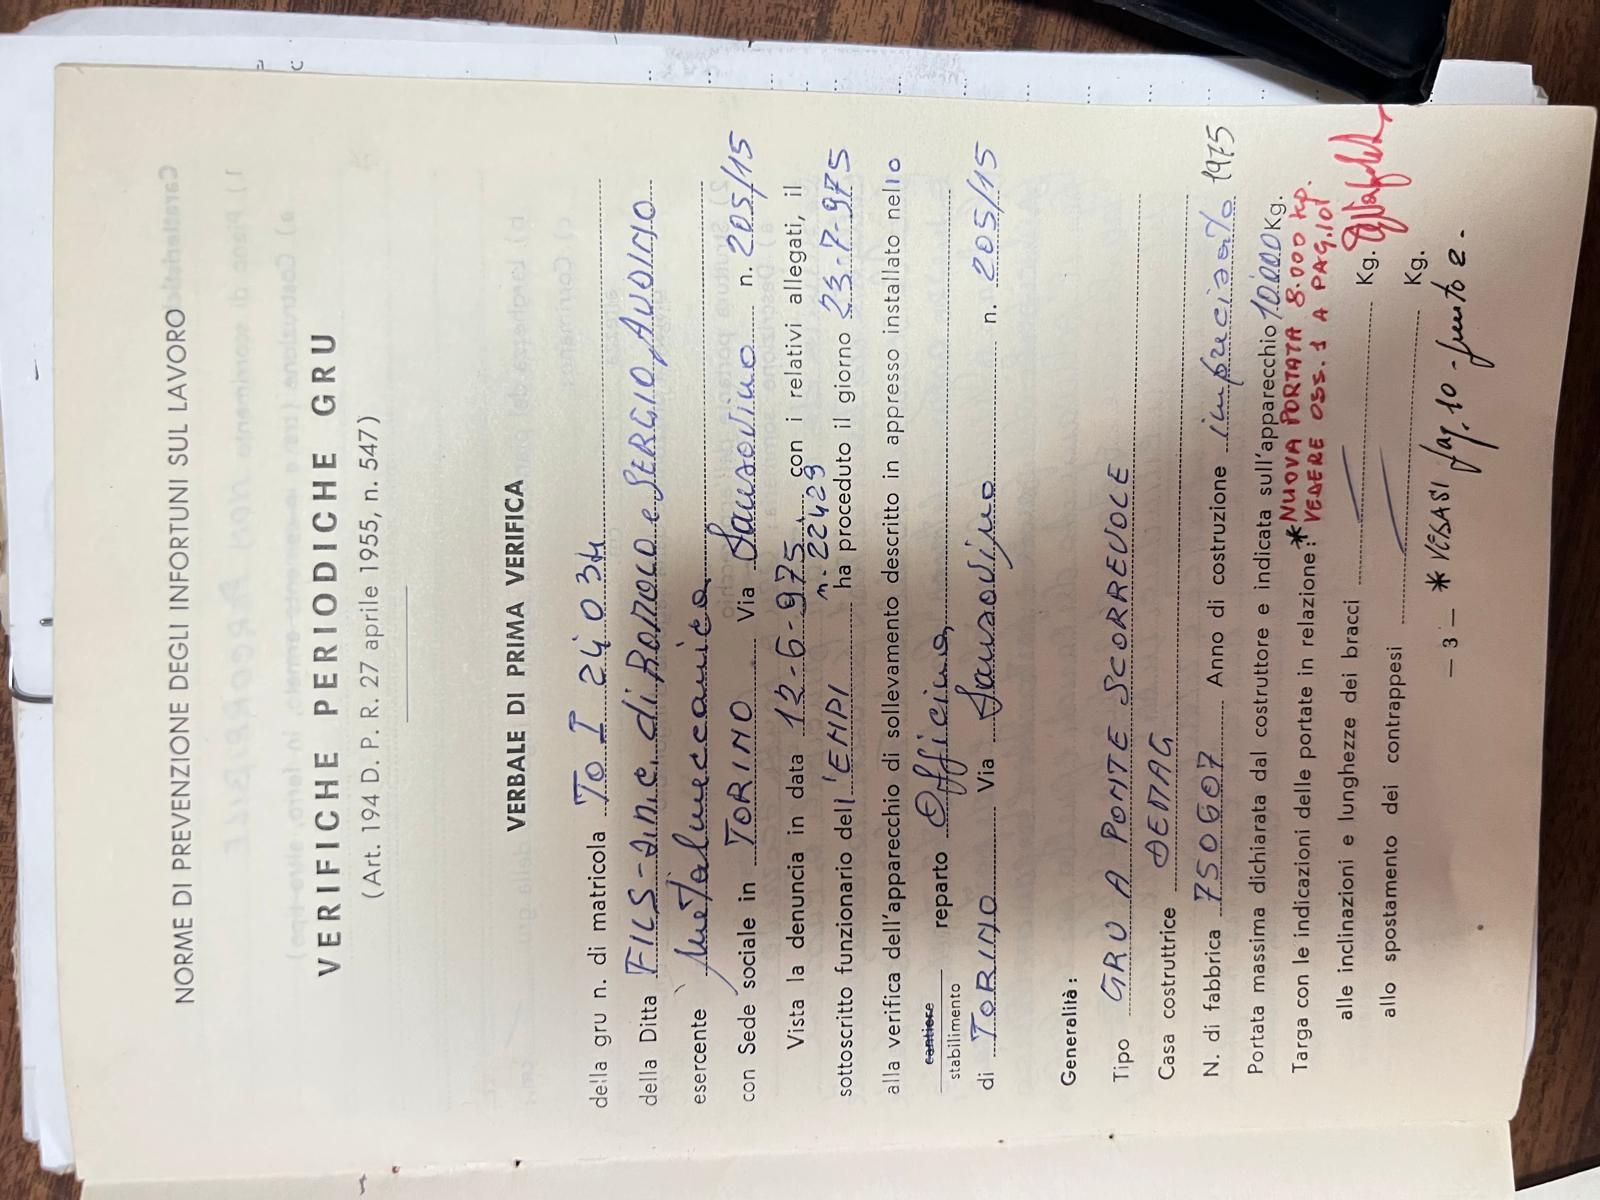 NORME DI PREVENZIONE DEGLI INFORTUNI SUL LAVORO
VERIFICHE PERIODICHE GRU
(Art. 194 D. P. R. 27 aprile 1955, n. 547)
VERBALE DI PRIMA VERIFICA
della gru n. di matricola TO I 2403H
della Ditta FILS-S.n.c. di ROMOLO e SERGIO AUDINO
esercente Metalmeccanica
con Sede sociale in TORINO Via Sansovino n. 205/15
Vista la denuncia in data 12-6-975 n. 22429 con i relativi allegati, il
sottoscritto funzionario dell'ENPI ha proceduto il giorno 23-7-975
alla verifica dell'apparecchio di sollevamento descritto in appresso installato nello
cantiere
stabilimento
reparto Officina,
di TORINO Via Sansovino n. 205/15
Generalità:
Tipo GRU A PONTE SCORREVOLE
Casa costruttrice DEMAG
N. di fabbrica 750607 Anno di costruzione imprecisato 1975
Portata massima dichiarata dal costruttore e indicata sull'apparecchio 10.000 Kg.
Targa con le indicazioni delle portate in relazione: * NUOVA PORTATA 8.000 kp.
VEDERE OSS. 1 A PAG. 10!
alle inclinazioni e lunghezze dei bracci Kg.
allo spostamento dei contrappesi Kg.
— 3 — * VEDASI pag. 10 - punto 2.